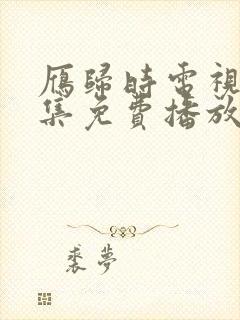 雁歸時電視
集免費播放
裘夢